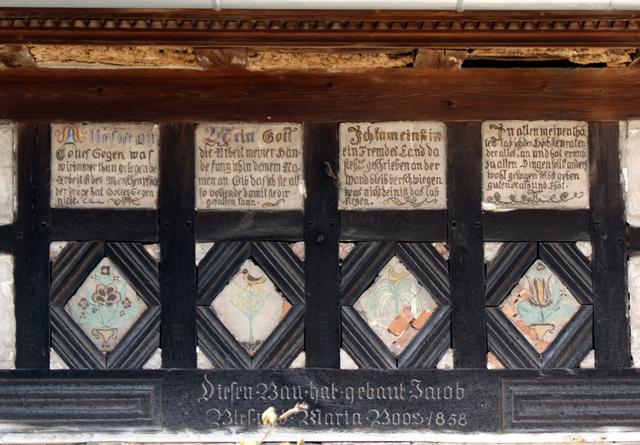 Alles ist an
Gottes Segen was
wir immer thun gelegen
Arbeit ist des Menschen pflicht
der trege hat Gottes Segen
nicht.
Mein Gott
die Arbeit meiner Hän
de fang ich in deinem Na
men an Gib das ich sie all
so vollende damit sie dir
gefallen kann.
Ich kam einst in
ein Fremdes Land da
stehet geschrieben an der
Wand bleib verschwiegen
was nicht dein ist das las
liegen.
In allen meinen tha
ten las ich den Höchsten raten
der alles kan und hat er mus
zu allen Dingen sols anders
wohl gelingen selbst geben
guten Rath und That.
Diesen·Bau·hat·gebaut·Jacob
Maria·Boos·1858